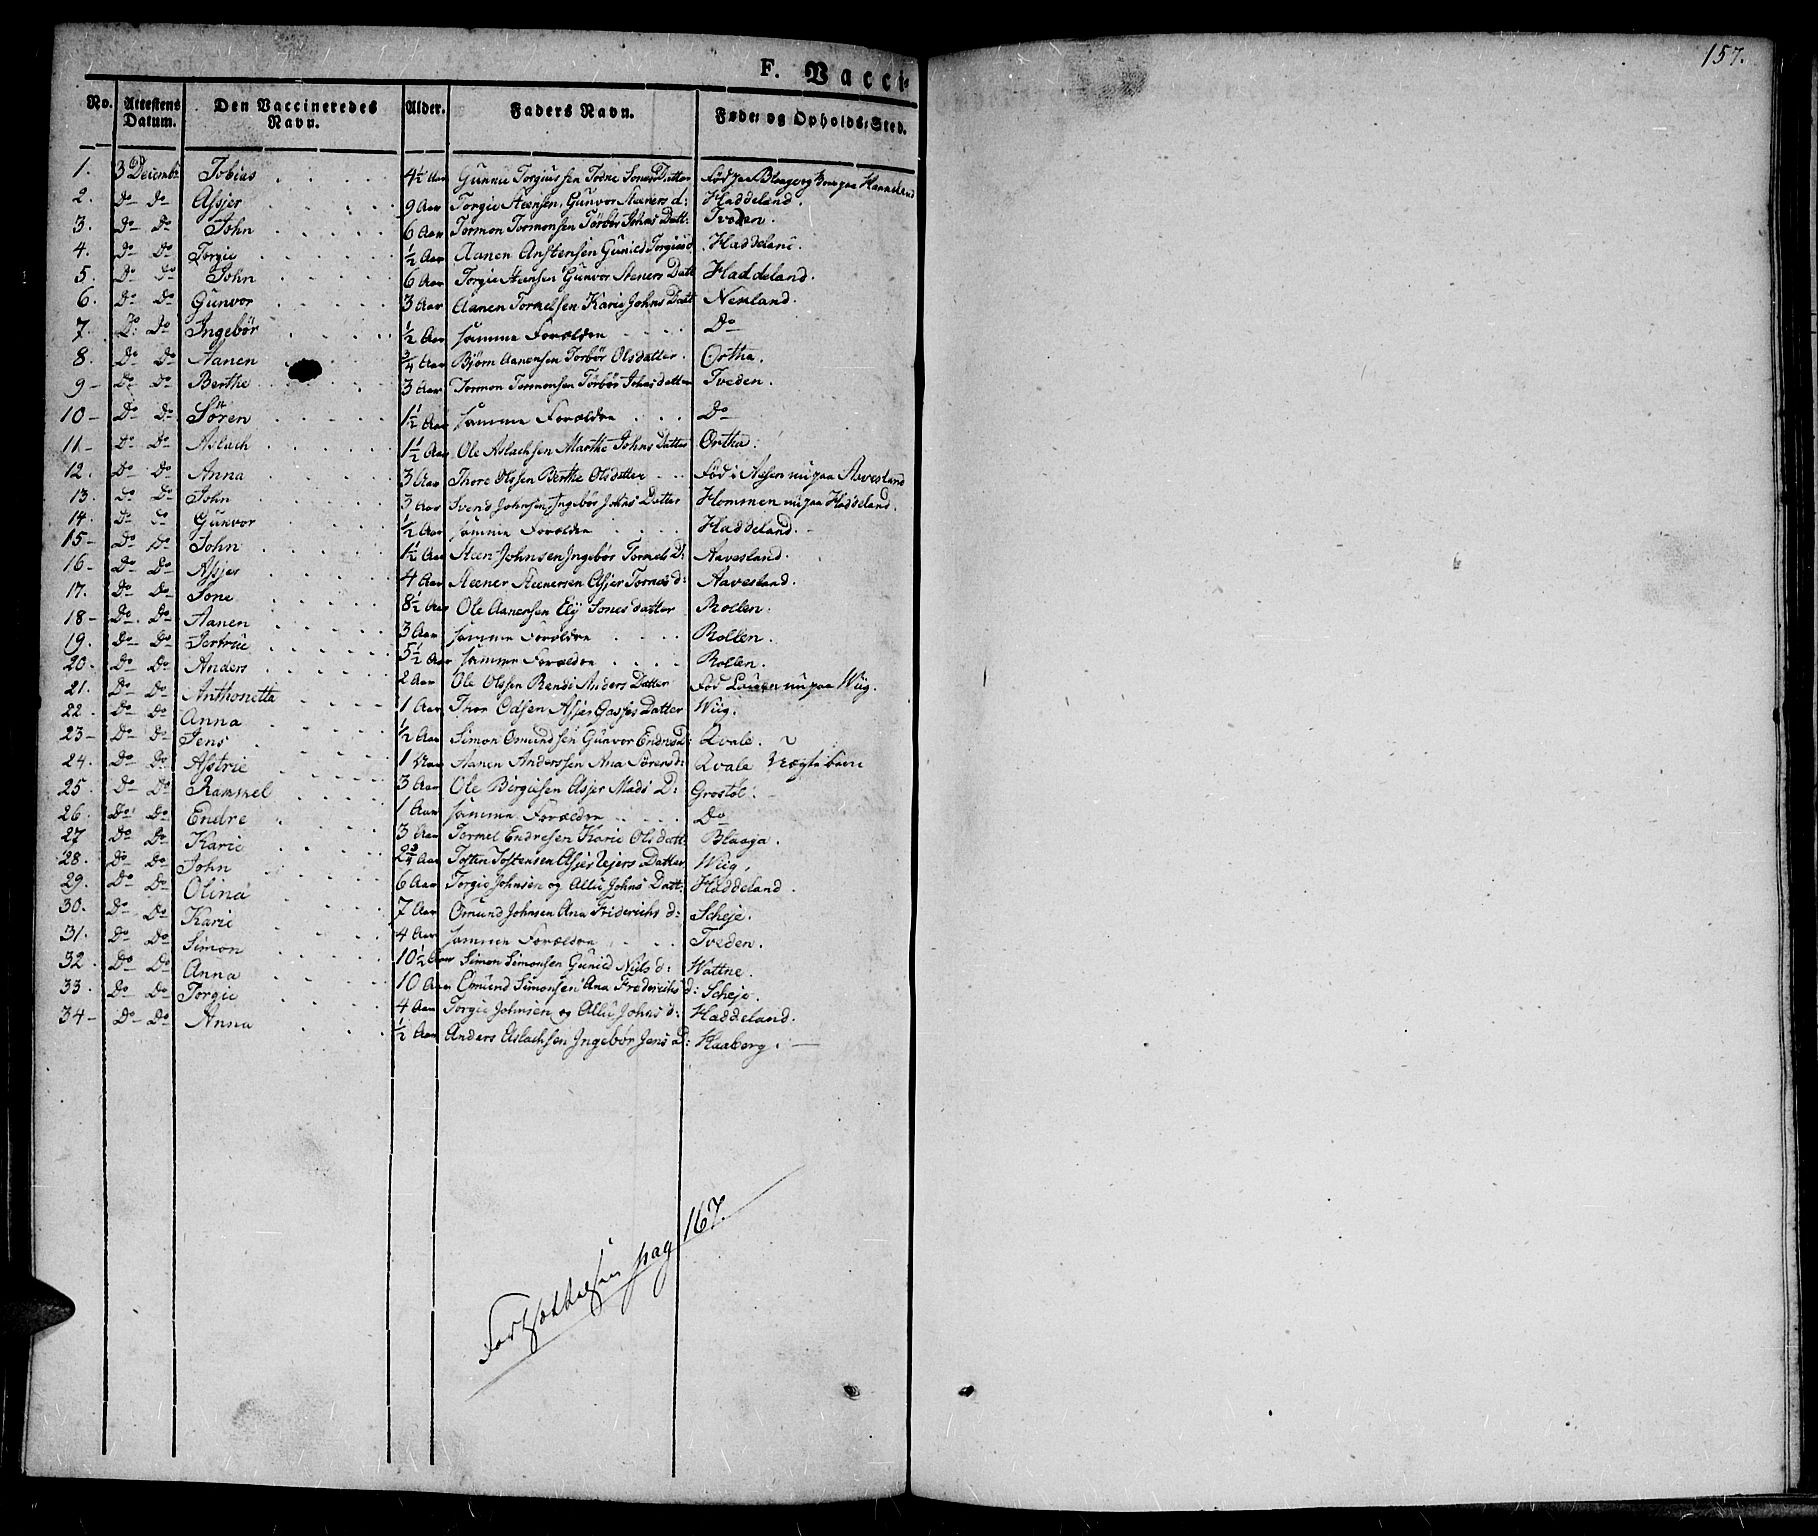 157.
F. Vacci-
No. Attestens Datum. Den Vaccineredes Navn. Alder. Faders Navn. Føde- og Opholds-Sted.
1. 3 Decembr Tobias 4½ Aar Gunnie Torgiussen Todne Sones Datter Fød paa Blaage og Boer paa Hanneland
2. Do Do Assjer 9 Aar Torgie Steensen, Gunvor Steeners d: Haddeland.
3. Do Do John 6 Aar Tormon Tormonsen Torbør Johns Datt: Tveden.
4. Do Do Torgie ½ Aar Aanen Anstensen Gunild Torgius d. Haddeland.
5. Do Do John 6 Aar Torgie Steensen Gunvor Steners Datt Haddeland.
6. Do Do Gunvor 3 Aar Aanen Tormelsen Karie Johns Datt Nerland.
7. Do Do Ingebør ½ Aar samme Forældre Do
8. Do Do Aanen ¾ Aar Bjørn Aanensen Torbør Olsdatter. Ortha.
9 - Do Do Berthe 3 Aar Tormon Tormonsen Torbør Johns datter Tveden.
10 - Do Do Sören 1½ Aar samme Forældre Do
11 - Do Do Aslach 1½ Aar Ole Aslachsen Marthe Johns Datter Ortha:
12. Do Do Anna 3 Aar Thore Olssen Berthe Olsdatter Fød i Aasen nu paa Aavesland
13. Do Do John 3 Aar Svend Johnsen, Ingebør Johns Datter Hommen nu paa Haddeland.
14. Do Do Gunvor ½ Aar samme Forældre Haddeland.
15 - Do Do John 1½ Aar Steen Johnsen Ingebør Tormels D: Aavesland.
16 - Do Do Assjer 4 Aar Steener Steenersen Assjer Tormes d: Aavesland.
17. Do Do Sone 8½ Aar Ole Aanensen Ely Sones datter Rollen.
18 - Do. Do Aanen 3 Aar samme Forældre Rollen.
19. Do Do Sertrue 5½ Aar samme Forældre Rollen.
20. Do Do Anders 2 Aar Ole Olssen Rendi Anders Datter Fød Lauen nu paa Wiig.
21. Do Do Anthonetta 1 Aar Thor Odsen Assjer Gasses Datter Wiig.
22. Do Do Anna ½ Aar Simon Omundsen Gunvor Endres D: Qvale.
23 - Do Do Jens 1 Aar Aanen Anderssen Ana Sörens d: Qvale Uægte barn
24. Do Do Astrie 3 Aar Ole Birgiesen Assjer Mads D: Grostöl.
25. Do Do Rammel 1 Aar samme Forældre Do
26. Do Do Endre 3 Aar Tormel Endresen Karie Olsdatt: Blaaga.
27 Do Do Karie 2¾ Aar Tosten Tostensen Assjer Vejers Datter Wiig.
28. Do Do John 6 Aar Torgie Johnsen og Allie Johns Datt: Haddeland.
29. Do Do Olina 7 Aar Omund Johnsen Ana Friderichs d: Scheje.
30. Do Do Karie 4 Aar samme Forældre Tveden.
31. Do Do Simon 10½ Aar Simon Simonsen Gunild Niels d: Wattne.
32. Do Do Anna 10 Aar Omund Simonsen Ana Frederichs d: Scheje.
33. Do Do Torgie 4 Aar Torgie Johnsen og Allie Johns d: Haddeland.
34 - Do Do Anna ½ Aar Anders Aslachsen Ingebør Jens D: Haaberg.
Fortsættelsen pag 167.